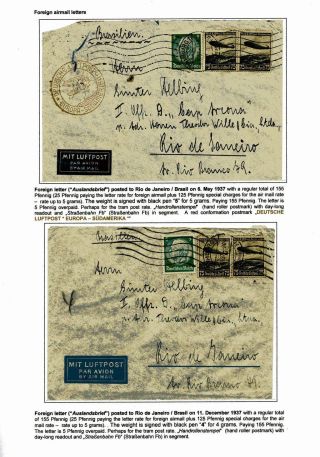 Foreign airmail letters
Brasilien.
Herrn
Günter Helbing
I. Offz. D. „Cap Norte"
Rio de Janeiro
MIT LUFTPOST
PAR AVION
BY AIR MAIL
Foreign letter ("Auslandsbrief") posted to Rio de Janeiro / Brasil on 6. May 1937 with a regular total of 155
Pfennig (25 Pfennig paying the letter rate for foreign airmail plus 125 Pfennig special charges for the air mail rate
– rate up to 5 grams). The weight is signed with black pen "5" for 5 grams. Paying 155 Pfennig. The letter is
5 Pfennig overpaid. Perhaps for the tram post rate. „Handrollenstempel" (hand roller postmark) with day-long
readout and „Straßenbahn Fb" (Straßenbahn Fb) in segment. A red conformation postmark „DEUTSCHE
LUFTPOST * EUROPA – SÜDAMERIKA *"
Herrn
Günter Helbing
Rio de Janeiro
MIT LUFTPOST
PAR AVION
BY AIR MAIL
Foreign letter ("Auslandsbrief") posted to Rio de Janeiro / Brasil on 11. December 1937 with a regular
total of 155 Pfennig (25 Pfennig paying the letter rate for foreign airmail plus 125 Pfennig special charges for the air
mail rate – rate up to 5 grams). . The weight is signed with black pen "4" for 4 grams. Paying 155 Pfennig.
The letter is 5 Pfennig overpaid. Perhaps for the tram post rate. „Handrollenstempel" (hand roller postmark) with
day-long readout and „Straßenbahn Fb" (Straßenbahn Fb) in segment.